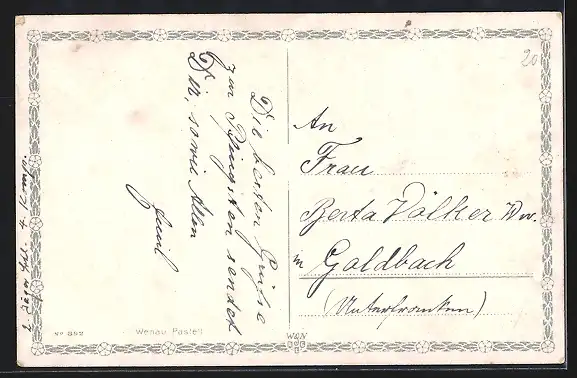 Die besten Grüße
zum Pfingsten sendet
Dir, sowie Allen
Emil
An
Frau
Berta Völker Ww.
in Goldbach
(Unterfranken)
20
No 852
Wenau Pastell
W&N